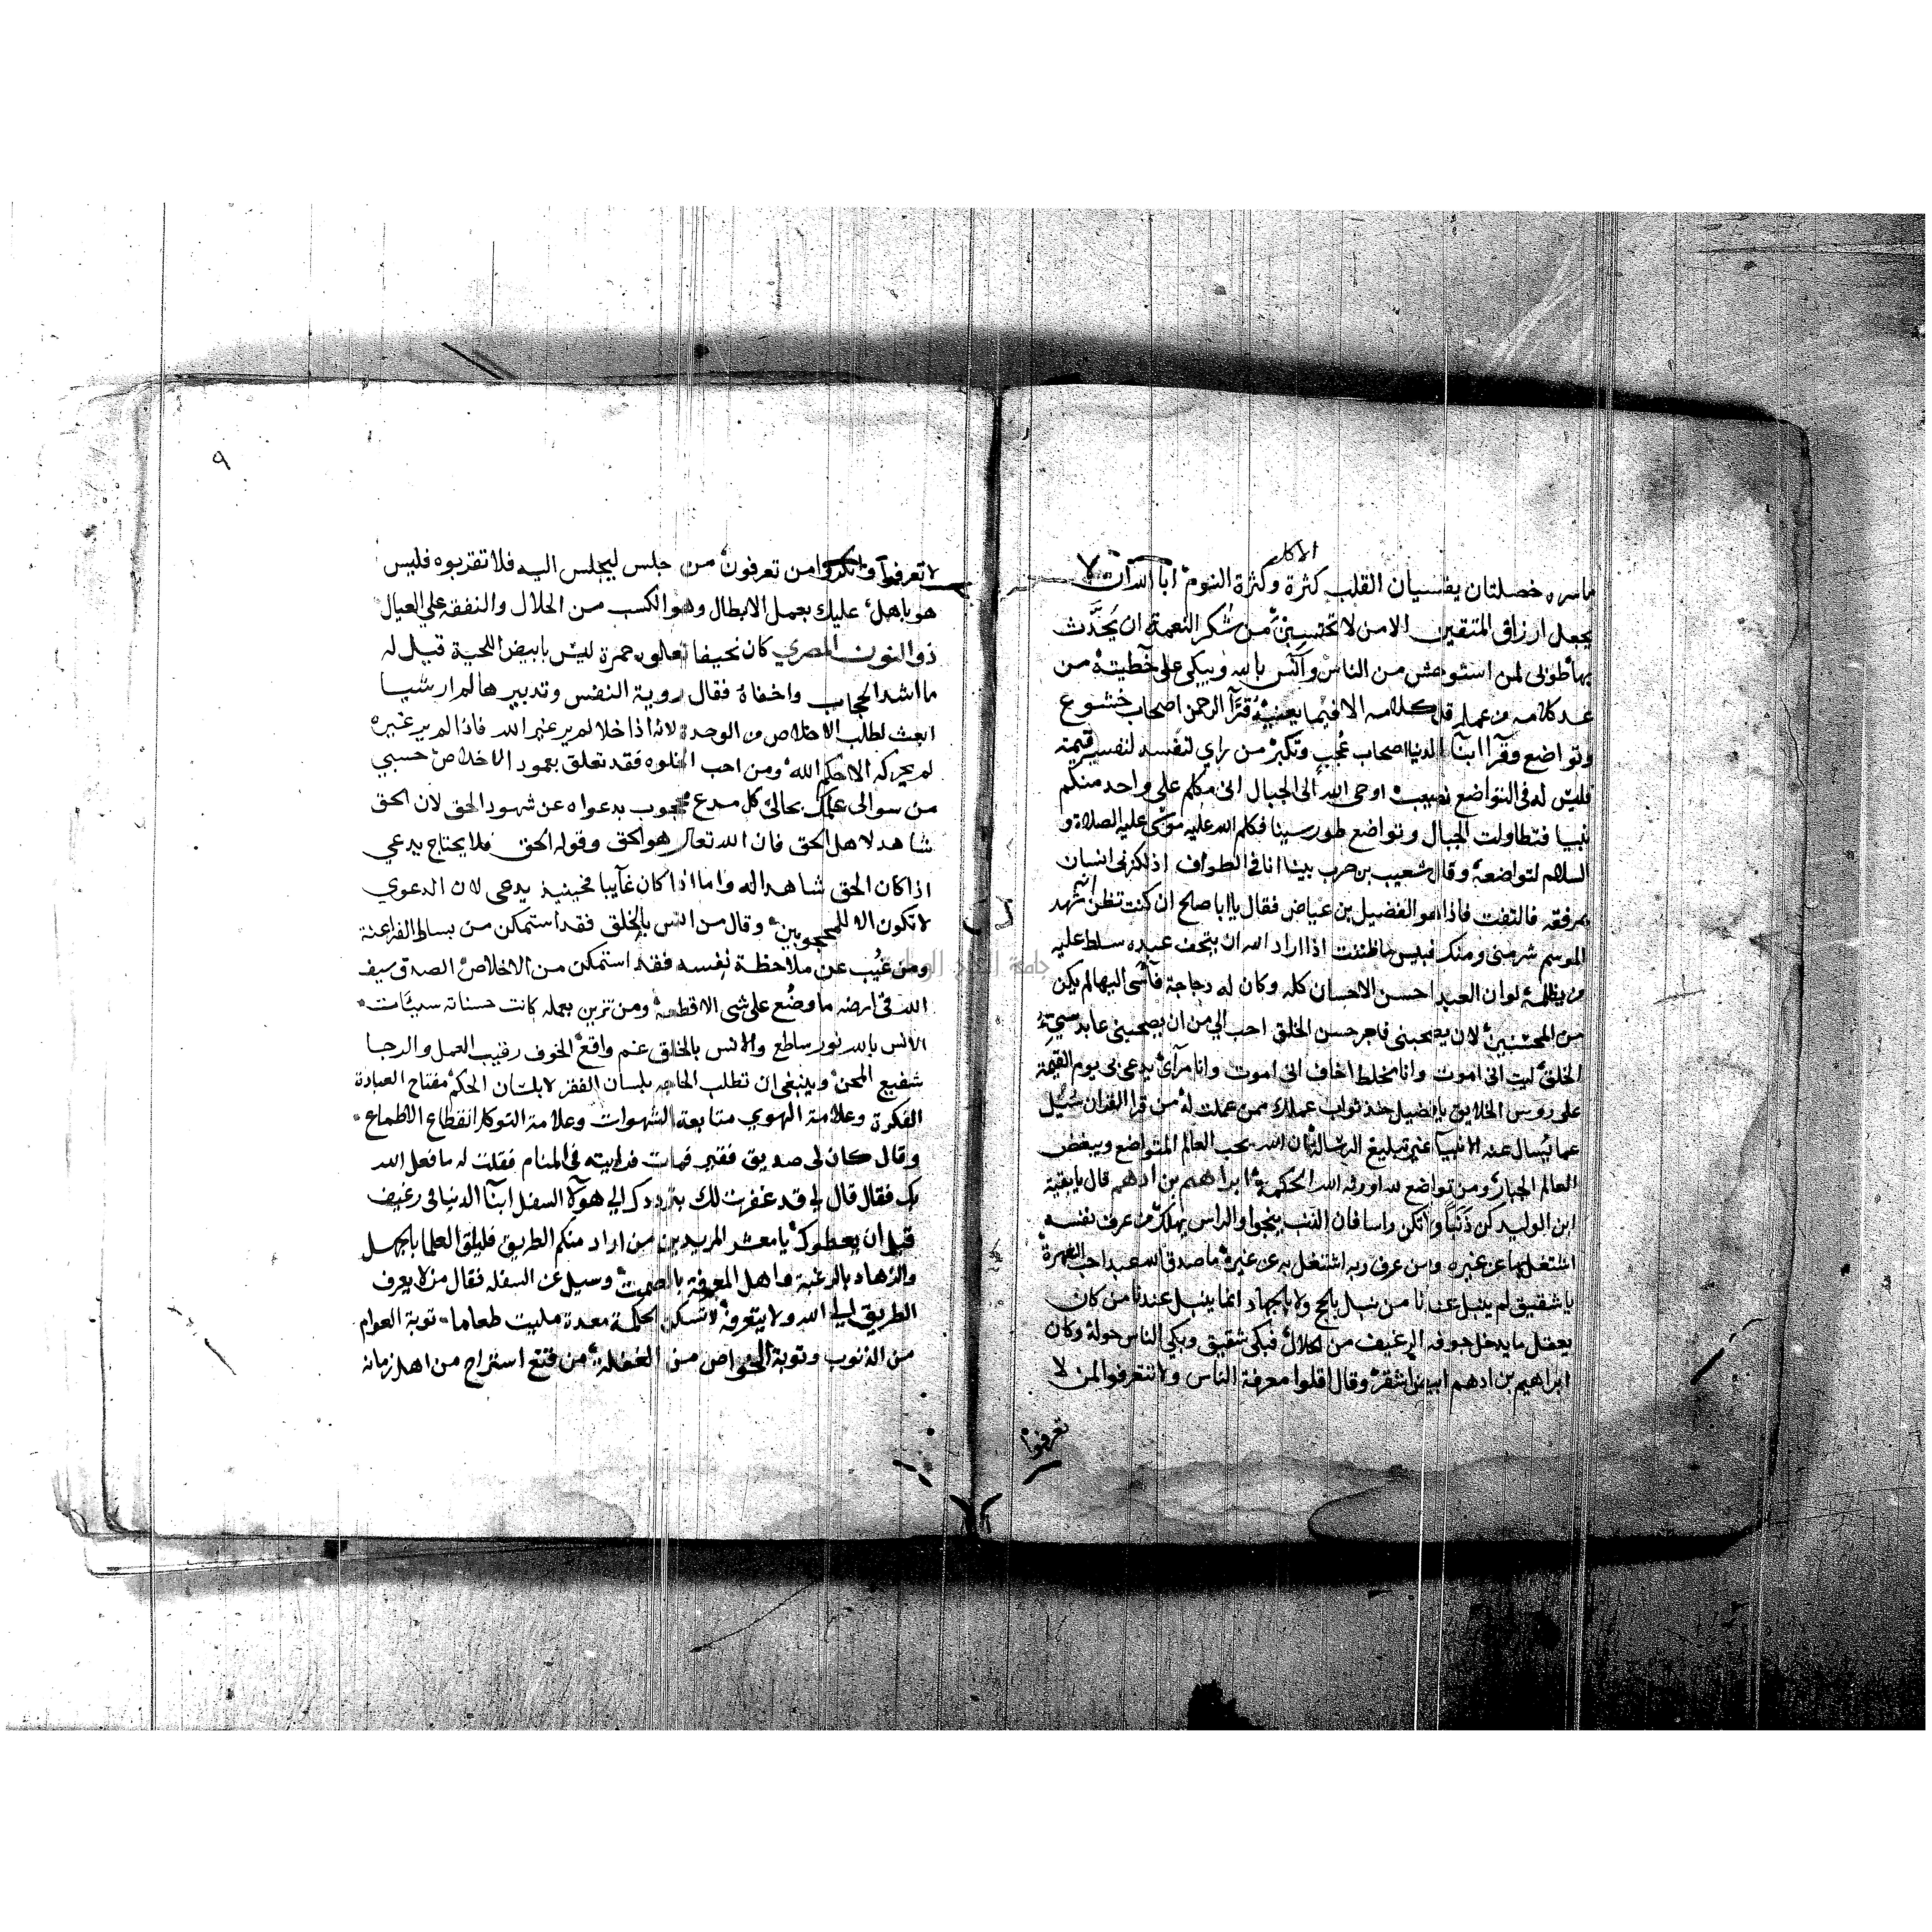 الاكل
ما سره خصلتان يفسيان القلب كثرة وكثرة النوم ابا الله ان لا
يجعل ارزاق المتقين الا من لا تحتسبن من شكر النعمة ان يُحَدَّث
بها طوبى لمن استوحش من الناس وآنس بالله وبكى على خطيته من
عد كلامه من عمله قل كلامه الا فيما يعنيه قرَّآ الرحمن اصحاب خشوع
وتواضع وقرا ابنآ الدنيا اصحاب عُجب وتكبر من راي لنفسه قيمة
فليس له في التواضع نصيب اوحى الله الى الجبال اني مكلم على واحد منكم
نبيا فتطاولت الجبال وتواضع طور سينا فكلم الله عليه موسى عليه الصلاة و
السلام لتواضعه وقال شعيب بن حرب بينا انا في الطواف اذ لكزني انسان
بمرفقه فالتفت فاذا هو الفضيل بن عياض فقال يا ابا صالح ان كنت تظن انه شهد
الموسم شر مني ومنك فبيس ما ظننت اذا اراد الله ان يتحف عبده سلط عليه
من يظلمه لو ان العبد احسن الاحسان كله وكان له دجاجة فآسى اليها لم يكن
من المحسنين لان يصحبني فاجر حسن الخلق احب الي من ان يصحبني عابد سيئ
الخلق ليت اني اموت وانا مخلط اخاف اني اموت وانا مرآئ يدعى بي يوم القيمة
على روس الخلايق يا فضيل خذ ثواب عملك ممن عملت له من قرا القران سُيل
عما يُسال عنه الانبيآ غير تبليغ الرسالة ان الله يحب العالم المتواضع ويبغض
العالم الجبار ومن تواضع لله اورثه الله الحكمة ابراهيم بن ادهم قال يا بقية
ابن الوليد كن ذَنَبًا ولا تكن راسا فان الذنب ينجوا والراس يهلك من عرف نفسه
اشتغل بها عن غيره ومن عرف ربه اشتغل به عن غيره ما صدق الله عبد احب الشهرة
يا شقيق لم ينبل عندنا من نبل بالحج ولا بالجهاد انما ينبل عندنا من كان
يعقل ما يدخل جوفه الرغيف من الحلال فبكى شقيق وبكي الناس حوله وكان
ابراهيم بن ادهم ابيض اشقر وقال اقلوا معرفة الناس ولا تتعرفوا لمن لا
تعرفوا
٩
لا تعرفوا وانكروا من تعرفون من جلس ليجلس اليه فلا تقربوه فليس
هو باهل عليك بعمل الابطال وهو الكسب من الحلال والنفقة علي العيال
ذو النون المصري كان نحيفا تعلوه حمرة ليس بابيض اللحية قيل له
ما اشد الحجاب واخفاه فقال روية النفس وتدبيرها لم ار شيا
ابعث لطلب الاخلاص من الوحدة لانه اذا خلا لم ير غير الله فاذا لم ير غيره
لم يحركه الا حكم الله ومن احب الخلوه فقد تعلق بعمود الاخلاص حسبي
من سوالى علمك بحالي كل مدع محجوب بدعواه عن شهود الحق لان الحق
شاهد لاهل الحق فان الله تعالى هو الحق وقوله الحق فلا يحتاج يدعي
اذا كان الحق شاهدا له واما اذا كان غآيبا فحينيذ يدعى لان الدعوي
لا تكون الا للمحجوبين وقال من انس بالخلق فقد استمكن من بساط الفراعنة
ومن غُيب عن ملاحظة نفسه فقد استمكن من الاخلاص الصدق سيف
الله في ارضه ما وضُع على شى الا قطعه ومن تزين بعمله كانت حسناته سيئات
الانس بالله نور ساطع والانس بالخلق غم واقع الخوف رقيب العمل والرجا
شفيع المحن وينبغي ان تطلب الحاجه بلسان الفقر لا بلسان الحكم مفتاح العبادة
الفكرة وعلامة الهوي متابعة الشهوات وعلامة التوكل انقطاع الاطماع
وقال كان لى صديق فقير فمات فرايته في المنام فقلت له ما فعل الله
بك فقال قال لي قد غفرت لك بترددك الي هولآ السفل ابنآ الدنيا في رغيف
قبل ان يعطوك يا معشر المريدين من اراد منكم الطريق فليلق العلما بالجهل
والزهاد بالرغبة واهل المعرفة بالصمت وسيل عن السفله فقال من لا يعرف
الطريق الي الله ولا يتعرفه لا تسكن الحكمة معدة مليت طعاما توبة العوام
من الذنوب وتوبة الخواص من الغفلة من قنع استراح من اهل زمانه